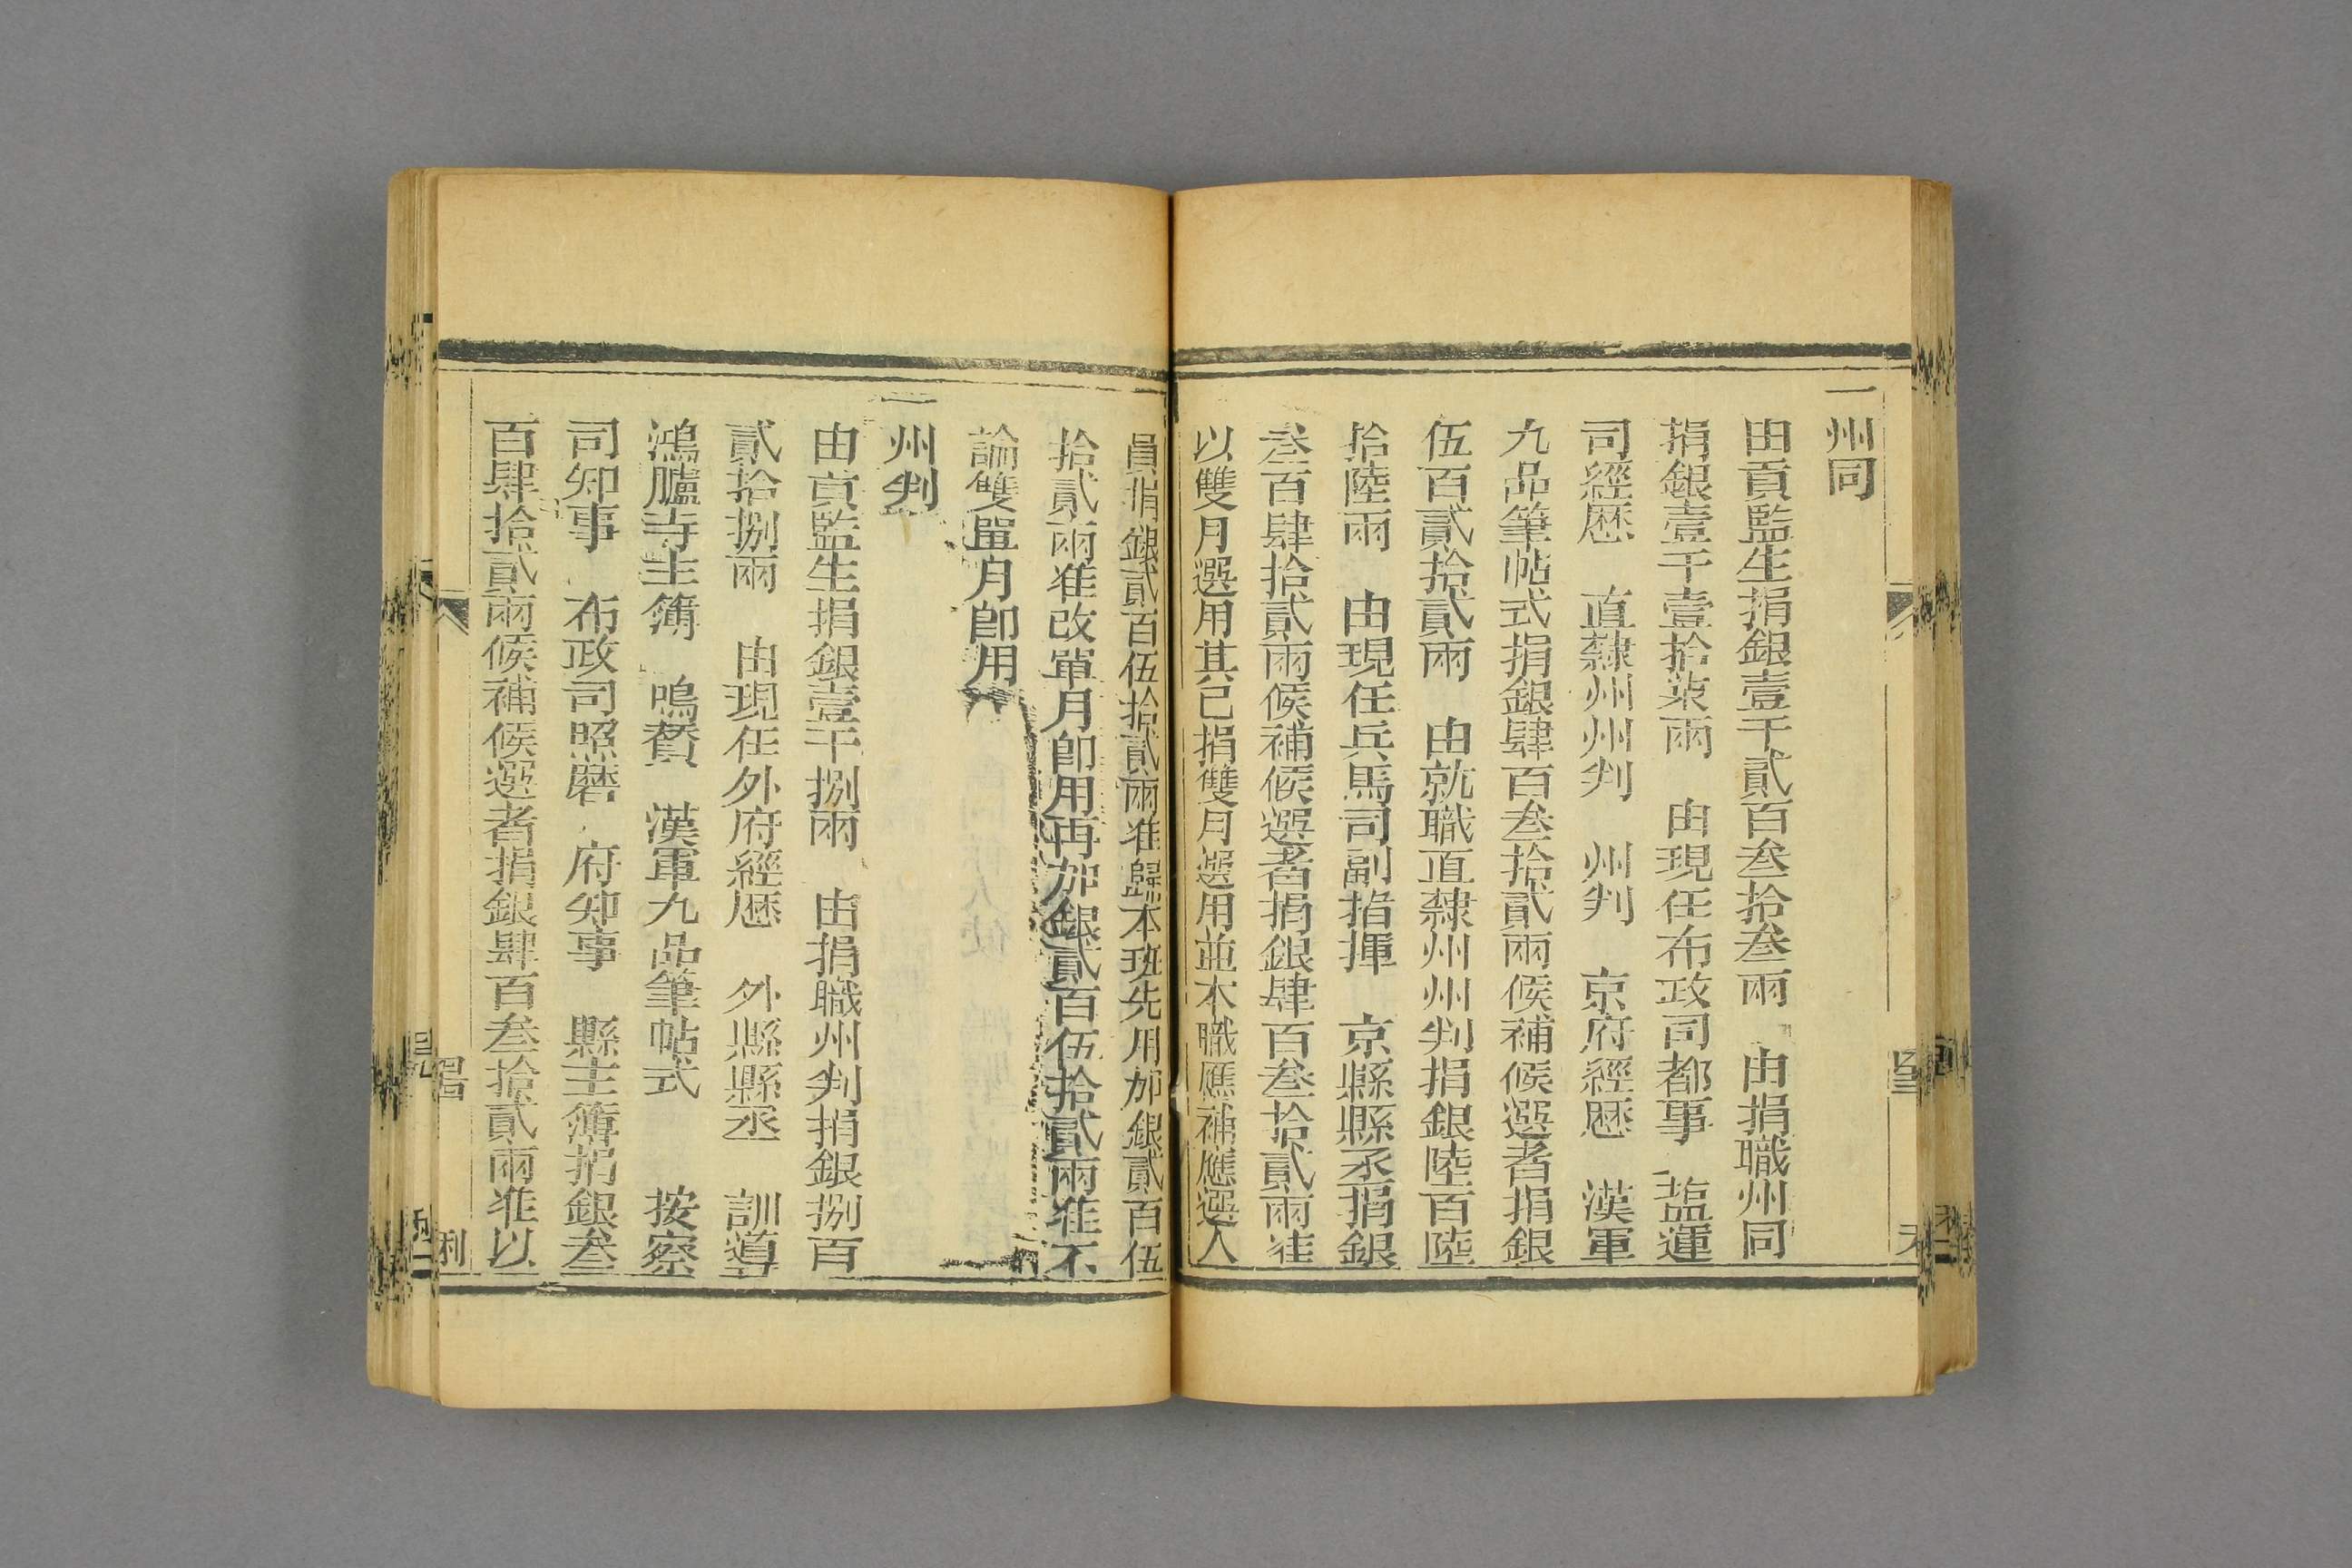 一州同
由貢監生捐銀壹千貳百叁拾叁兩　由捐職州同
捐銀壹千壹拾柒兩　由現任布政司都事　塩運
司經歷　直隸州州判　州判　京府經歷　漢軍
九品筆帖式捐銀肆百叁拾貳兩候補候選者捐銀
伍百貳拾貳兩　由就職直隸州州判捐銀陸百陸
拾陸兩　由現任兵馬司副指揮　京縣縣丞捐銀
叁百肆拾貳兩候補候選者捐銀肆百叁拾貳兩准
以雙月選用其已捐雙月選用並本職應補應選人
員捐銀貳百伍拾貳兩准歸本班先用加銀貳百伍
拾貳兩准改單月卽用再加銀貳百伍拾貳兩准不
論雙單月卽用
一州判
由貢監生捐銀壹千捌兩　由捐職州判捐銀捌百
貳拾捌兩　由現任外府經歷　外縣縣丞　訓導
鴻臚寺主簿　鳴贊　漢軍九品筆帖式　按察
司知事　布政司照磨　府知事　縣主簿捐銀叁
百肆拾貳兩候補候選者捐銀肆百叁拾貳兩准以
利